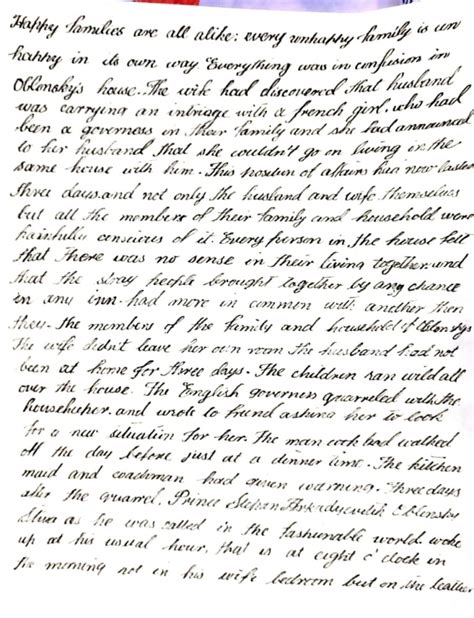 Happy families are all alike; every unhappy family is un
happy in its own way Everything was in confusion in
Oblonsky's house. The wife had discovered that husband
was carrying an intriage with a french girl, who had
been a governess in their family and she had announced
to her husband that she couldn't go on living in the
same house with him. This position of affairs had now lasted
three days. and not only the husband and wife themselves
but all the members of their family and household were
painfully conscious of it. Every person in the house felt
that there was no sense in their living together. and
that the stray people brought together by any chance
in any inn. had more in common with another then
they. the members of the family and household of Oblonsky
The wife didn't leave her own room the husband had not
been at home for three days. The children ran wild all
over the house. The English governess quarreled with the
housekeeper. and wrote to friend asking her to look
for a new situation for her. The man cook had walked
off the day before just at a dinner time. The kitchen
maid and coachman had given warning. Three days
after the quarrel. Prince Stepan Oblonsky
Stiva as he was called in the fashionable world woke
up at his usual hour. that is at eight o' clock in
the morning not in his wife bedroom but on the leather